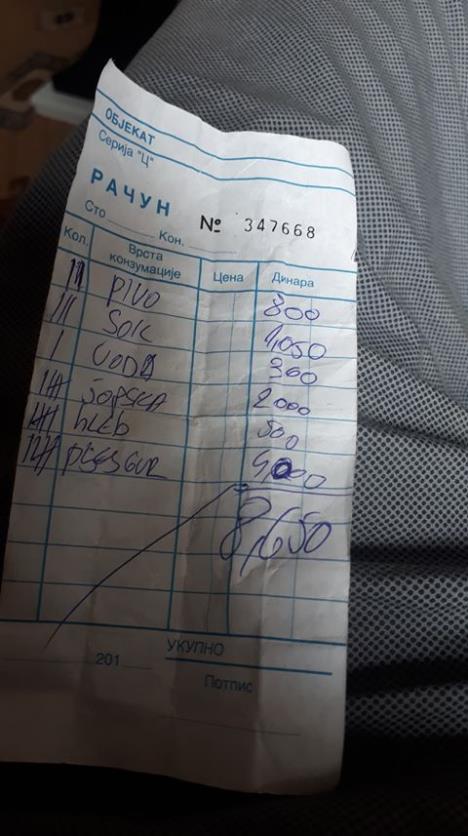 ОБЈЕКАТ
Серија "Ц"
РАЧУН
№ 347668
Сто Кон.
Кол. Врста конзумације Цена Динара
PIVO 800
III SOK 1,050
I VODA 300
ŠOPSKA 2000
HLEB 500
8,650
УКУПНО
201
Потпис